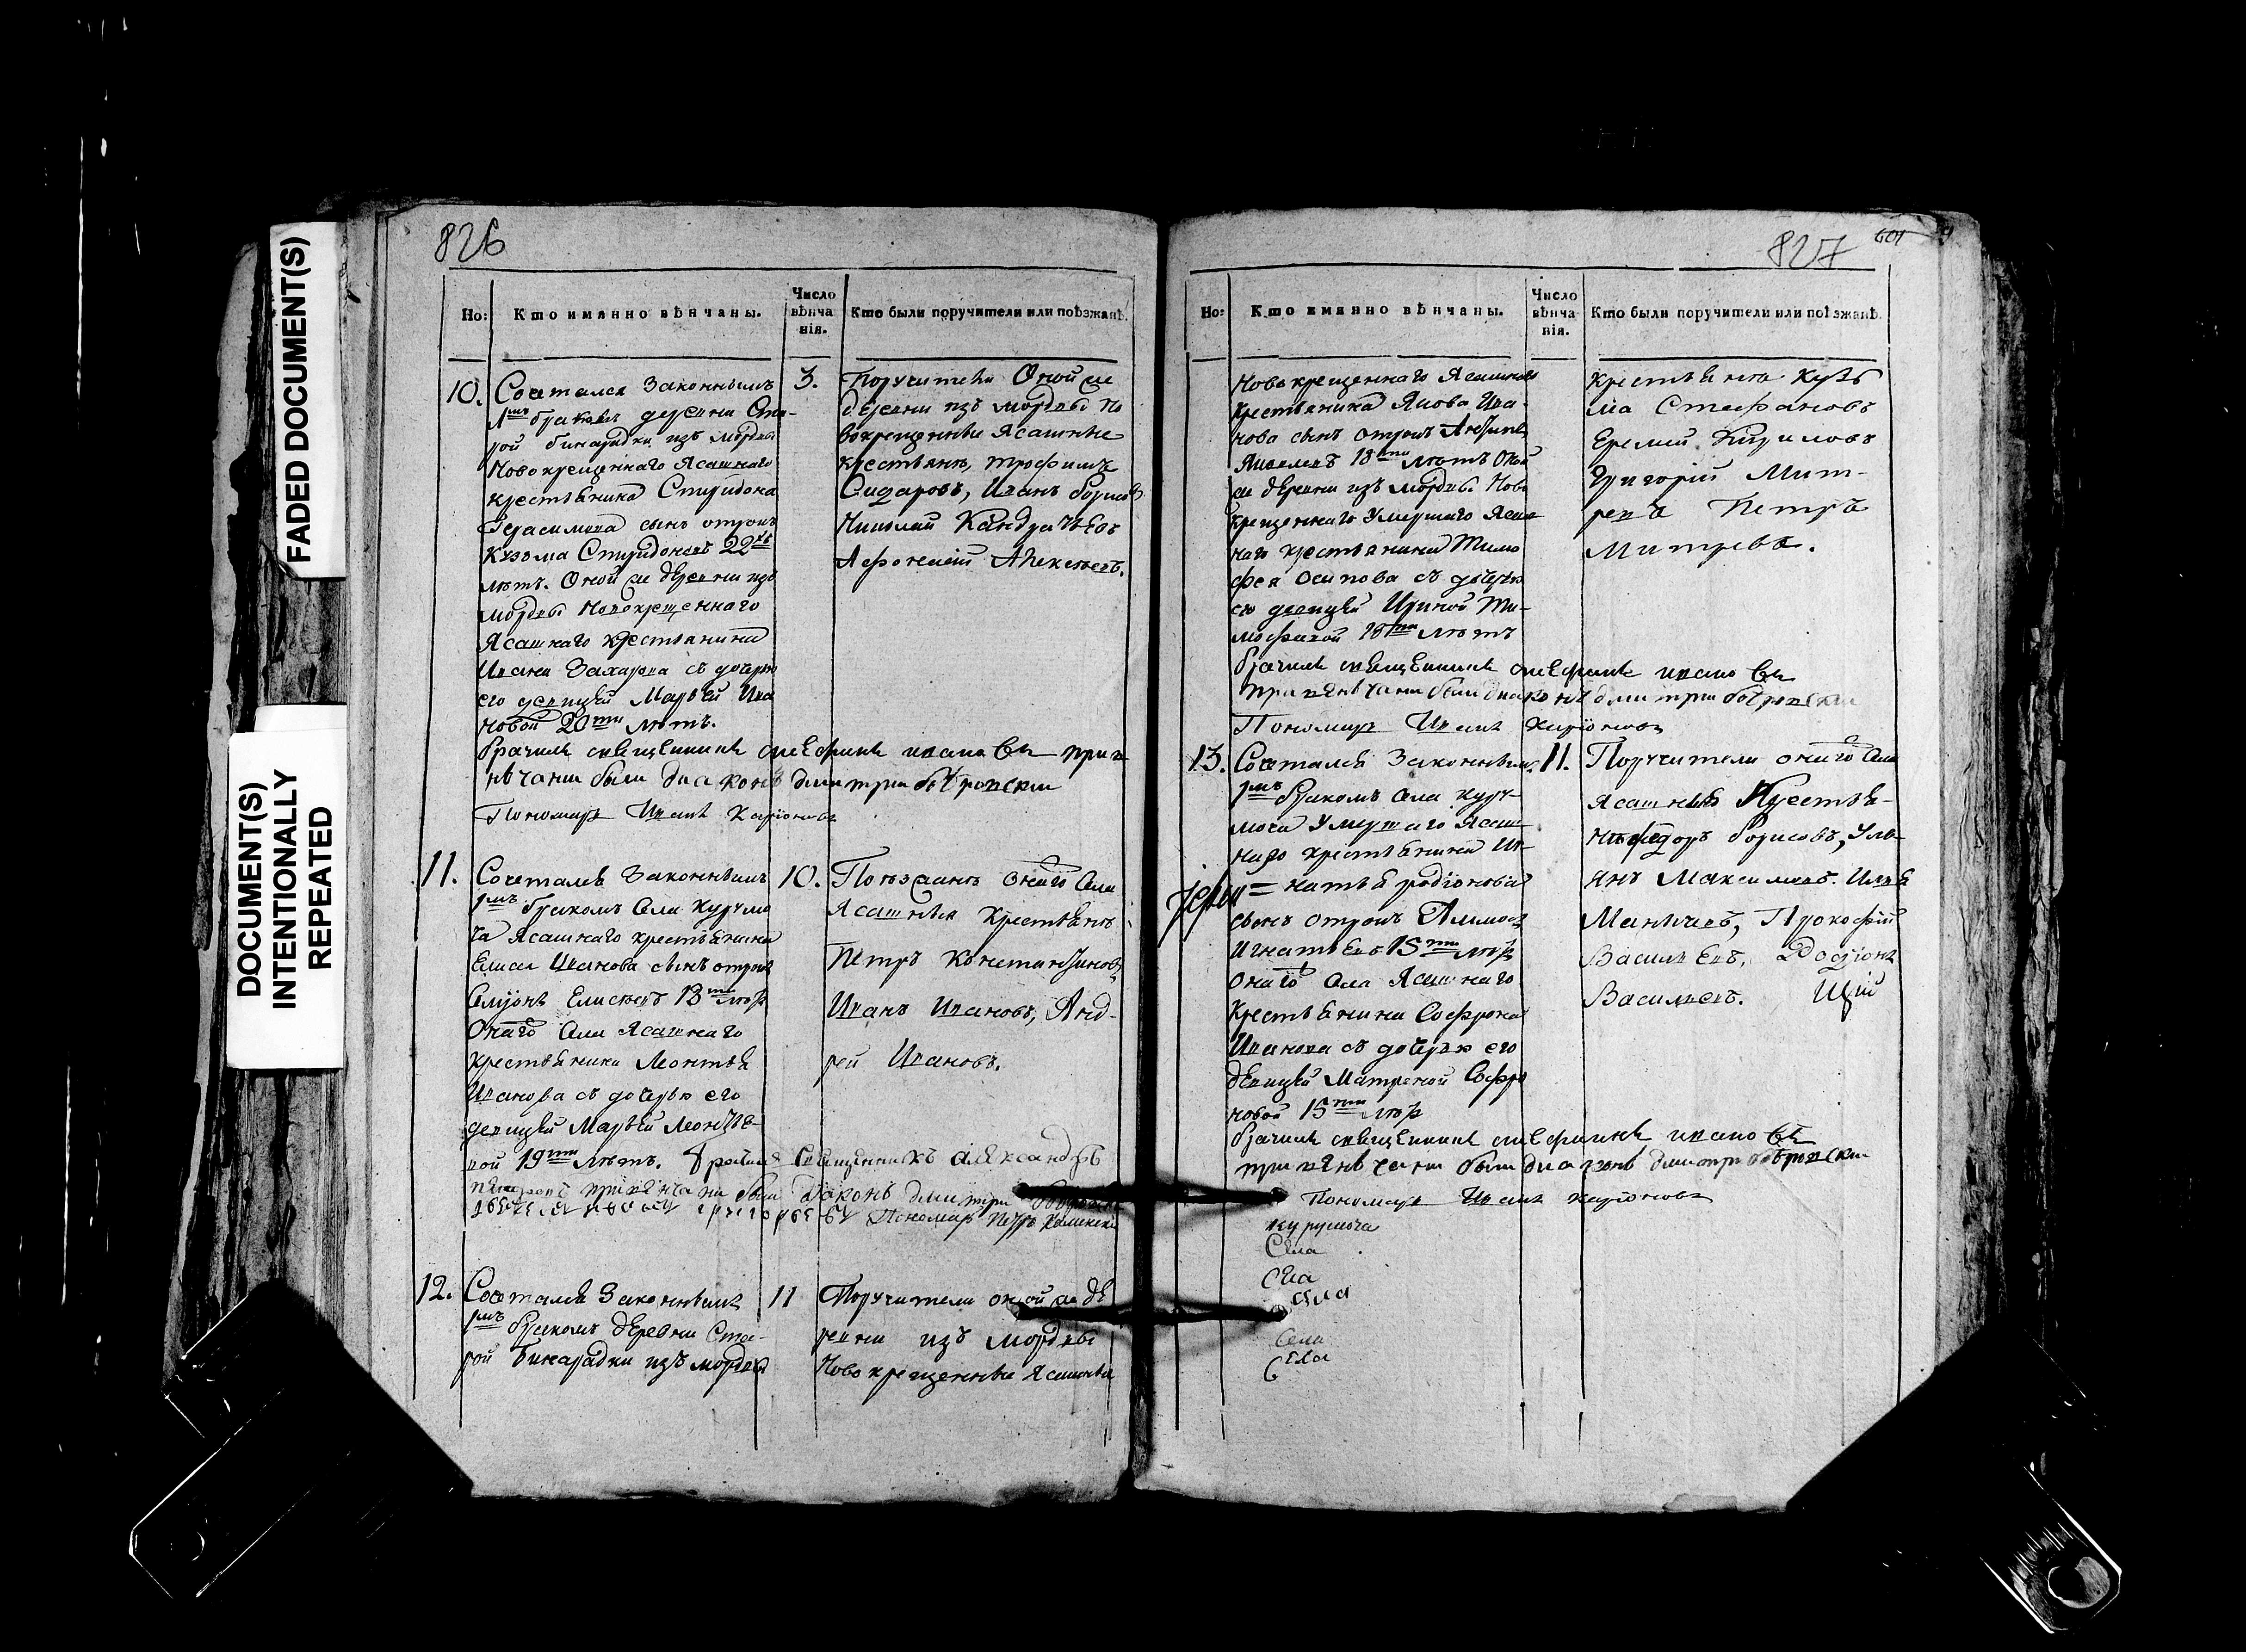 FADED DOCUMENT(S)
DOCUMENT(S)
INTENTIONALLY
REPEATED
826
Но:
Кто имянно вѣнчаны.
Число
вѣнча
нія.
Кто были поручители или поѣзжанѣ.
10.
Сочетался Законнымъ
1мъ бракомъ деревни Ста-
рой бинарадки изъ мордвы
Новокрещеннаго Ясашнаго
крестьянина Спиридона
Герасимова сынъ отрокъ
Кузьма Спиридоновъ 22хъ
лѣтъ. Оной же деревни изъ
мордвы Новокрещеннаго
Ясашнаго крестьянина
Ивана Захарова съ дочерью
его девицей Марьей Ива
новой 20ти лѣтъ.
3.
Поручители Оной же
деревни изъ мордвы Но
вокрещенные Ясашные
крестьяне, Трофимъ
Сидаровъ, Иванъ борисов
Николай Кандратьевъ
Афонасий Алексеевъ.
брачилъ священникъ стефанъ ивановъ при в
нчани были диаконъ дмитри бобровски
Пономарь Иванъ Харионовъ
11.
Сочетался Законнымъ
1мъ бракомъ села курумо
ча Ясашнаго крестьянина
Елисея Иванова сынъ отрокъ
Онаго села Ясашнаго
крестьянина Леонтья
Иванова съ дочерью его
девицей Марьей Леонтье-
вой 19ти лѣтъ. брачилъ Священникъ александръ
10.
Поѣзжанѣ онаго села
Ясашныя крестьяне
Петръ Константинов
Иванъ Ивановъ, Анд-
рей Ивановъ.
12.
Сочетался Законнымъ
1мъ бракомъ деревни Ста-
рой бинарадки изъ мордвы
11
Поручители оной же де
ревни изъ мордвы
Новокрещенные Ясашныя
827
601
Но:
Кто имянно вѣнчаны.
Число
вѣнча
нія.
Кто были поручители или поѣзжанѣ.
Новокрещеннаго Ясашнаго
крестьянина Якова Ива-
нова сынъ отрокъ Антипъ
Яковлевъ 18ти лѣтъ Оной
же деревни изъ мордвы Ново
крещеннаго Умершаго Ясаш
наго крестьянина Тимо
фея Осипова съ дочерью
его девицей Ириной Ти-
мофевой 18ти лѣтъ
крестьяне Кузь
ма Стефановъ
Еремей Кириловъ
Григорій Мит-
ревъ Петръ
Митревъ.
брачилъ священникъ стефанъ ивановъ
при венчани были диаконъ дмитри бобровски
Пономарь Иванъ Харионовъ
13.
Сочетался Законнымъ
1мъ бракомъ села куру-
моча Умершаго Ясаш-
наго крестьянина Иг-
натья родіонова
сынъ отрокъ
Игнатьевъ 15ти лѣтъ
онаго села Ясашнаго
крестьянина Софрона
Иванова съ дочерью его
девицей Матреной Софро
новой 15ти лѣтъ
11.
Поручители онаго села
ясашныя Крестья-
не федоръ борисовъ, Улья
янъ Максимовъ. Илья
Прокофій
Васильевъ,
Васильевъ.
брачилъ священникъ стефанъ ивановъ
при венчани были диаконъ дмитри бобровски
Пономарь Иванъ харионовъ
курумоча
Села
Села
Села
Села
Села